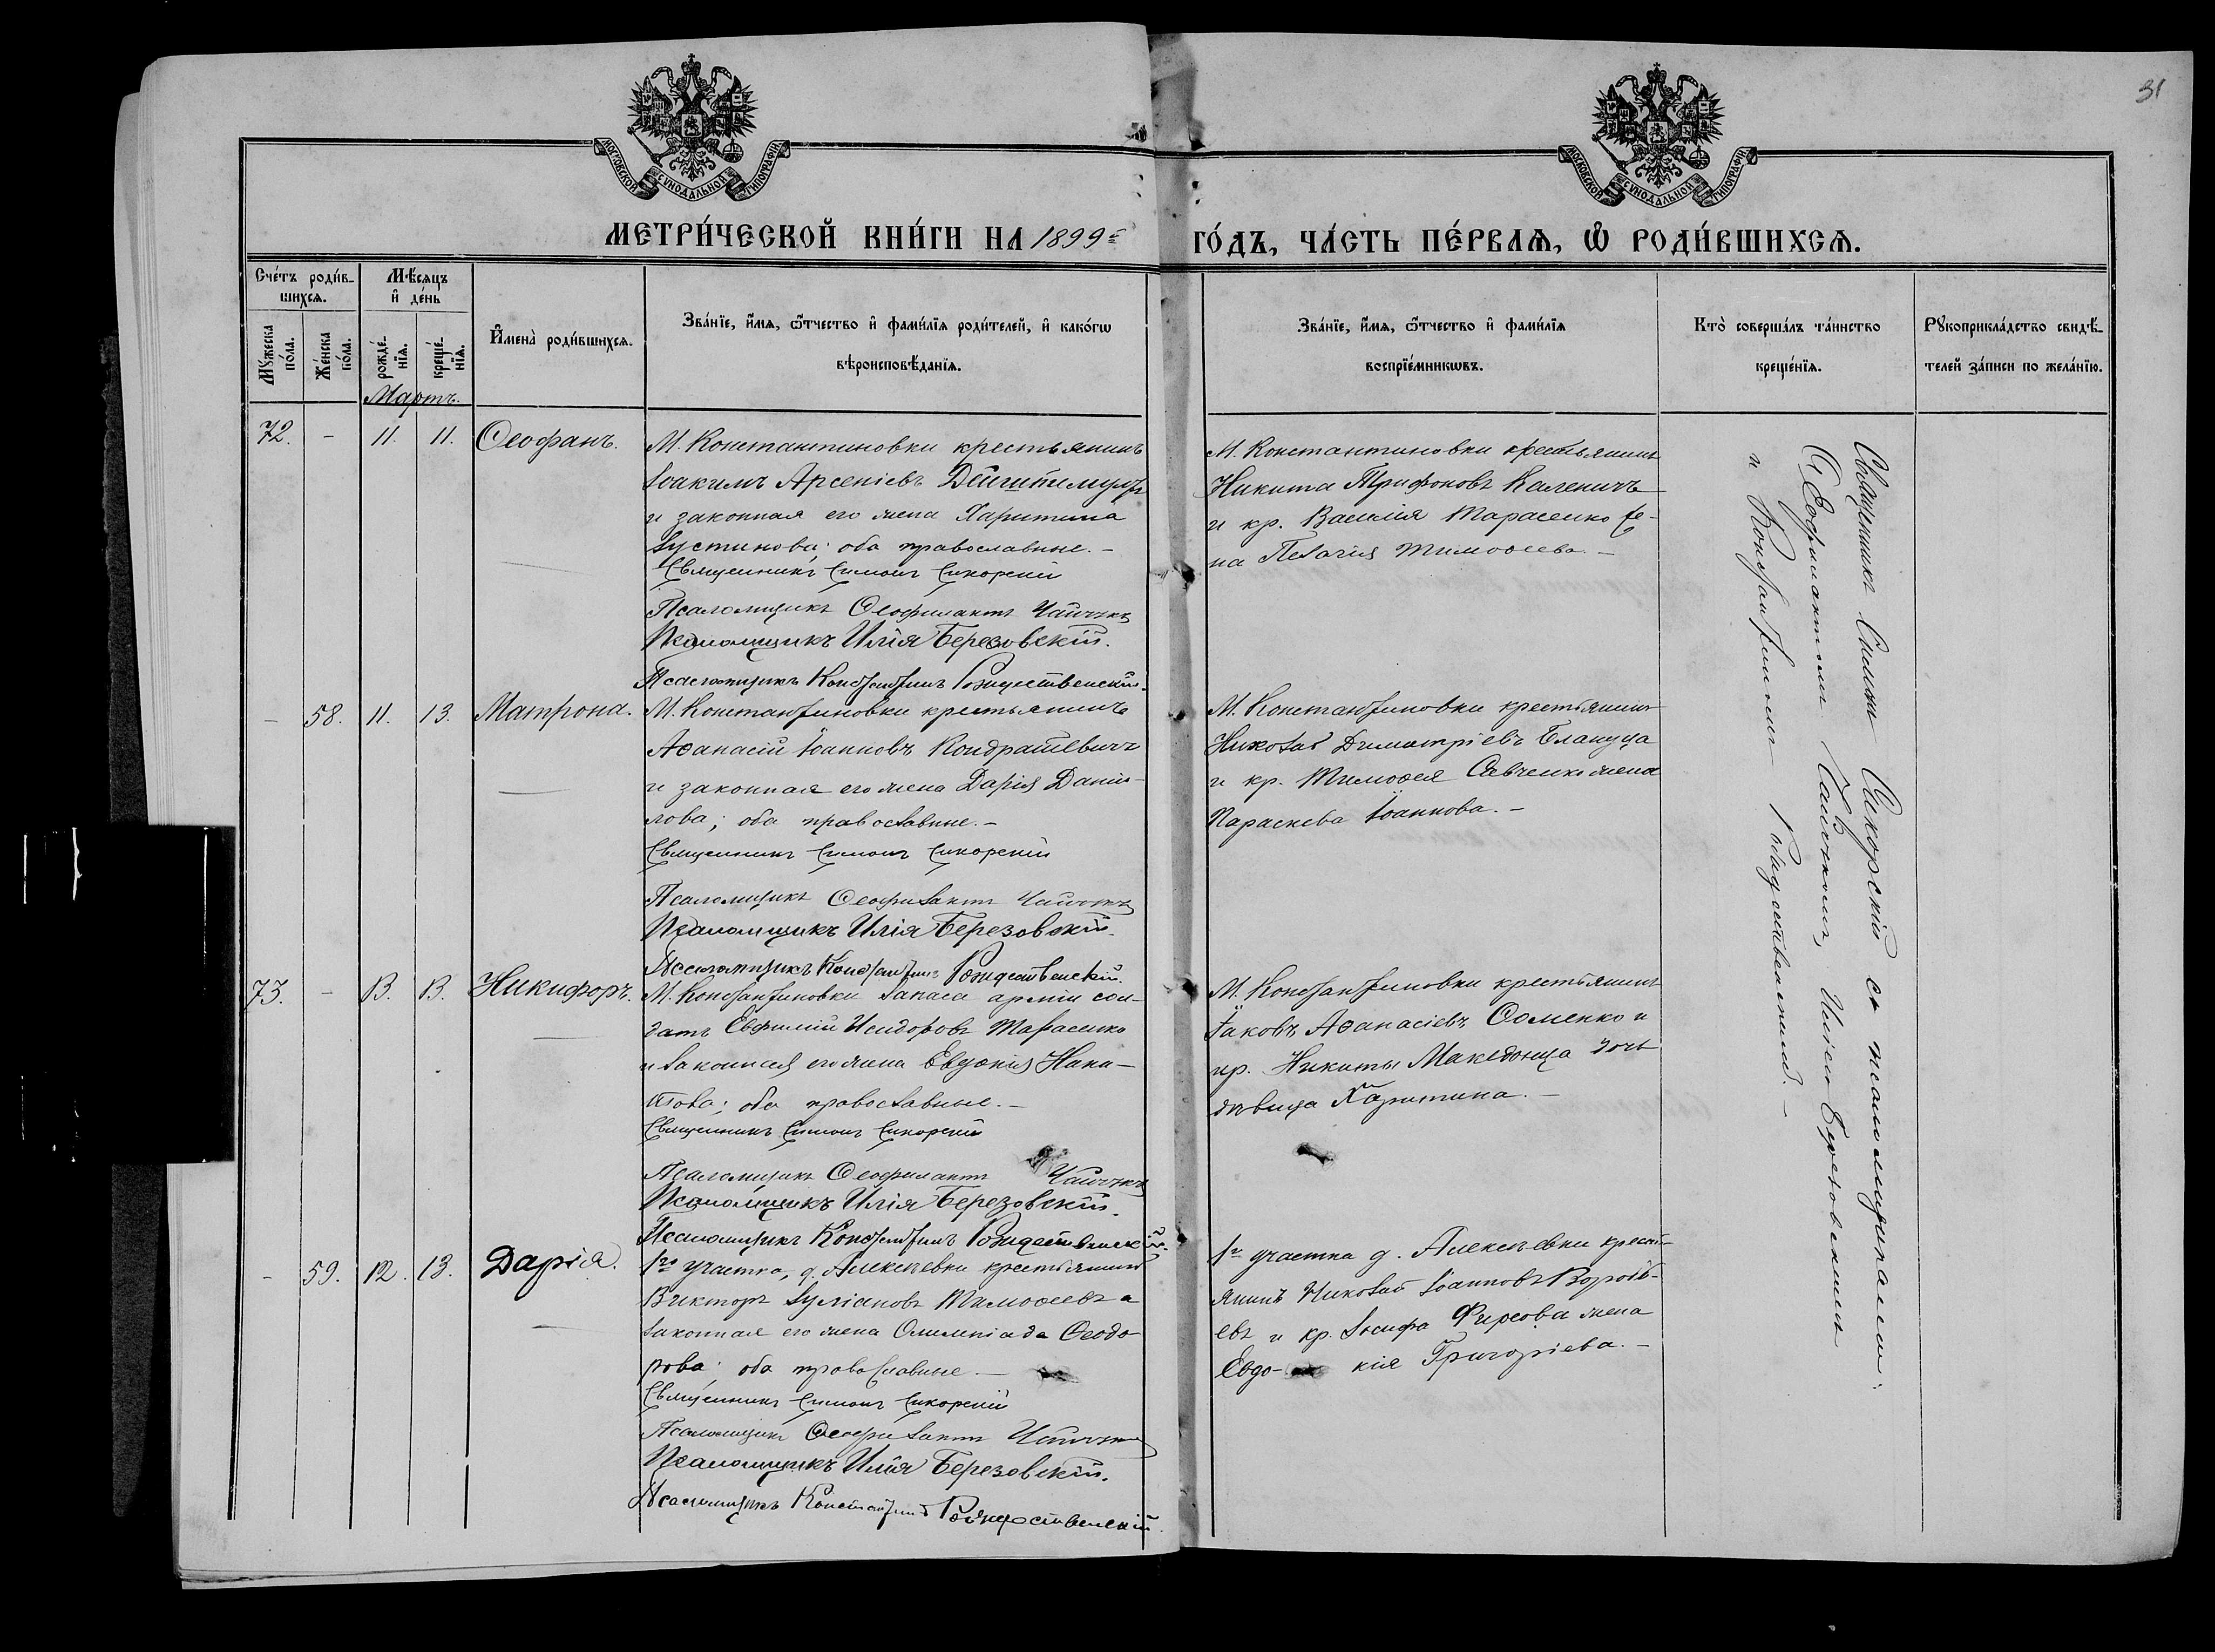 31
МОСКОВСКОЙ СѴНОДАЛЬНОЙ ТИПОГРАФІИ
МОСКОВСКОЙ СѴНОДАЛЬНОЙ ТИПОГРАФІИ
МЕТРИ́ЧЕСКОЙ КНИ́ГИ НА 1899 ГО́ДЪ, ЧА́СТЬ ПЕ́РВАѦ, Ѡ҆ РОДИ́ВШИХСѦ.
Сче́тъ роди́в-
шихсѧ.
Мꙋжеска по́ла.
Же́нска по́ла.
Мѣ́сѧцъ
и҆ де́нь
рожде́-
нїѧ.
креще́-
нїѧ.
И҆мена̀ роди́вшихсѧ.
Зва́нїе, и҆́мѧ, ѻ҆́тчество и҆ фами́лїѧ роди́телей, и҆ како́гѡ
вѣроисповѣ́данїѧ.
Зва́нїе, и҆́мѧ, ѻ҆́тчество и҆ фами́лїѧ
воспрїе́мникѡвъ.
Кто̀ соверша́лъ та́инство
креще́нїѧ.
Рꙋкоприкла́дство свидѣ́-
телей за́писи по жела́нїю.
Мартъ.
72. - 11. 11. Ѳеофанъ.
М. Константиновки крестьянинъ
Іоакимъ Арсеніевъ
и законная его жена Харитина
Іустинова; оба православные. -
Священникъ Симонъ Сикорскій
Псаломщикъ Ѳеофилактъ
Псаломщикъ Илія Березовскій.
Псаломщикъ Константинъ Рождественскій.
М. Константиновки крестьянинъ
Никита Трифоновъ Каленичъ
и кр. Василія Тарасенко же-
на Пелагія Тимоѳеева. -
- 58. 11. 13. Матрона.
М. Константиновки крестьянинъ
Аѳанасій Іоанновъ Кондрашевичъ
и законная его жена Дарія Дани-
лова; оба православные. -
Священникъ Симонъ Сикорскій
Псаломщикъ Ѳеофилактъ
Псаломщикъ Илія Березовскій.
Псаломщикъ Константинъ Рождественскій.
М. Константиновки крестьянинъ
Николай Димитріевъ
и кр. Тимоѳея Савченко жена
Параскева Іоаннова. -
73. - 13. 13. Никифоръ.
М. Константиновки запаса арміи сол-
датъ Евфимій Исидоровъ Тарасенко
и законная его жена Евдокія
оба православные. -
Священникъ Симонъ Сикорскій
Псаломщикъ Ѳеофилактъ
Псаломщикъ Илія Березовскій.
Псаломщикъ Константинъ Рождественскій.
М. Константиновки крестьянинъ
Іаковъ Аѳанасіевъ Ѳоменко и
кр. Никиты Македонца дочь
дѣвица Харитина. -
- 59. 12. 13. Дарія.
1го участка, д. Алексѣевки крестьянинъ
Викторъ Іуліановъ Тимоѳеевъ и
законная его жена Олимпіада Ѳеодо-
рова; оба православные. -
Священникъ Симонъ Сикорскій
Псаломщикъ Ѳеофилактъ
Псаломщикъ Илія Березовскій.
Псаломщикъ Константинъ Рождественскій.
1го участка д. Алексѣевки кресть-
янинъ Николай Іоанновъ Воробь-
евъ и кр. Іосифа Фирсова жена
Евдо- кія Григоріева. -
Священникъ Симонъ Сикорскій съ псаломщиками:
Ѳеофилактомъ Иліею Березовскимъ
и Константиномъ Рождественскимъ. -